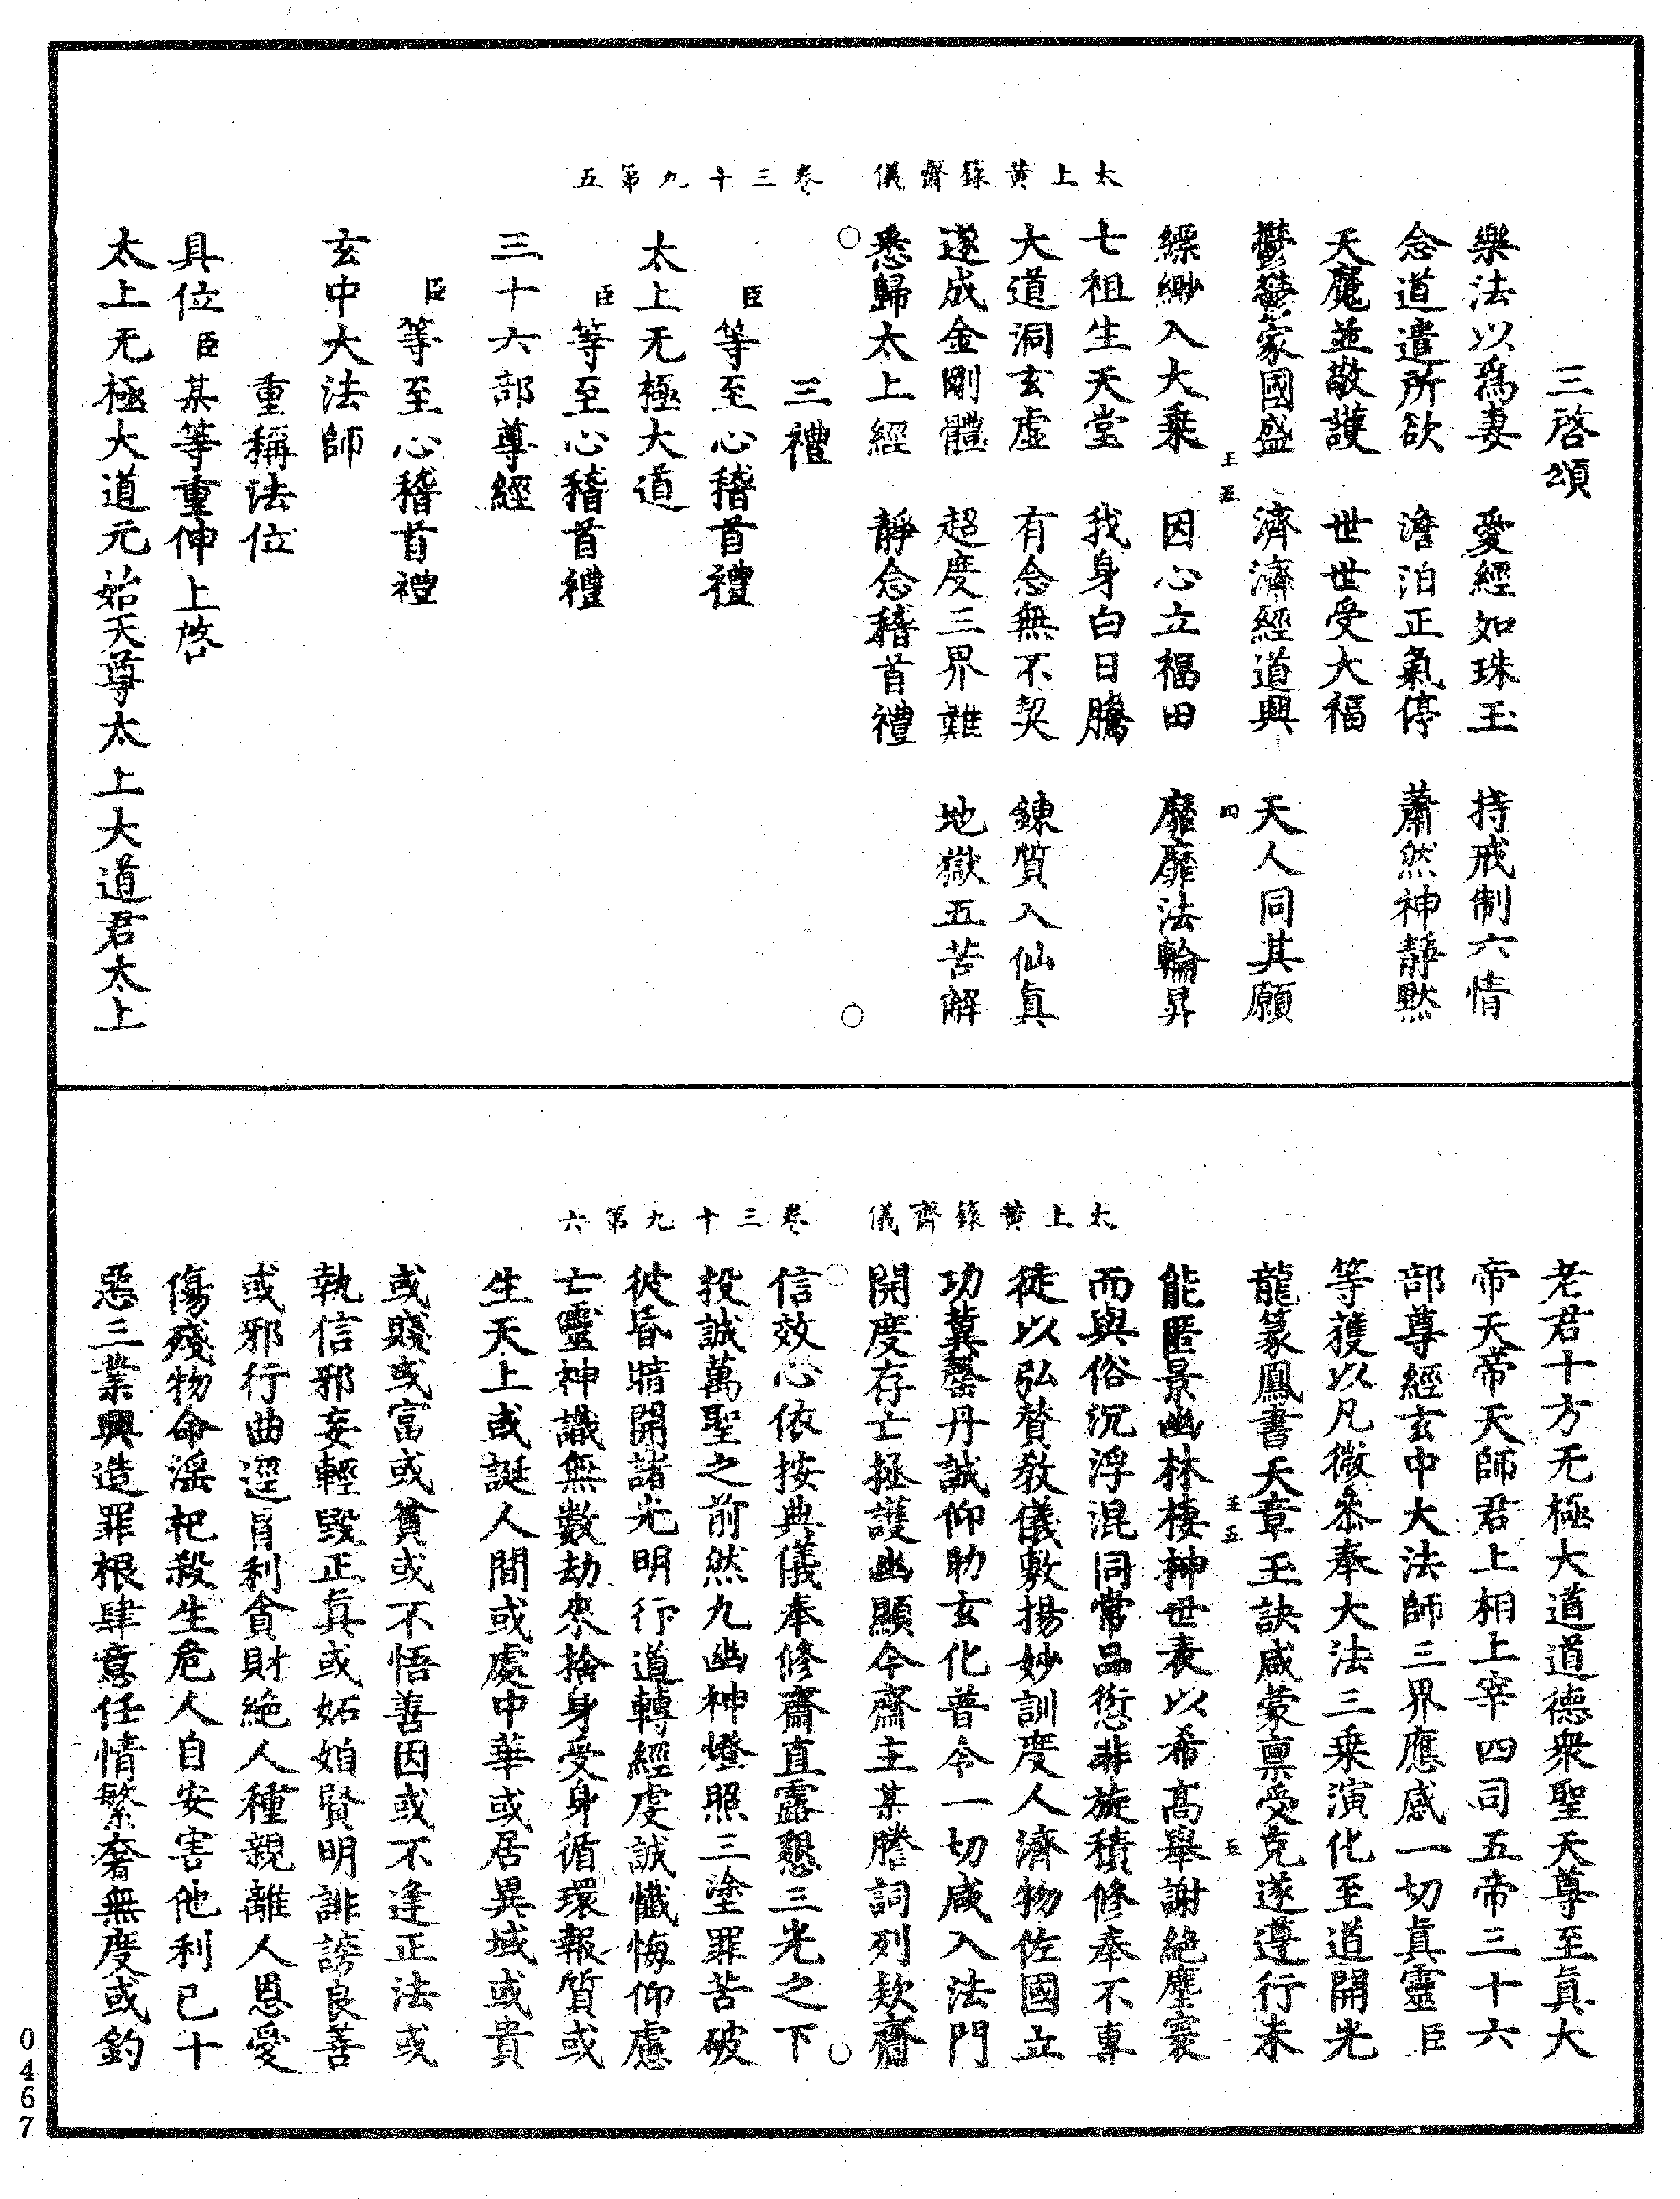 太上黃籙齋儀　卷三十九第五
三啓頌
樂法以爲妻　愛經如珠玉　持戒制六情
念道遣所欲　澹泊正氣停　蕭然神靜默
天魔並敬護　世世受大福
鬱鬱家國盛　濟濟經道興　天人同其願
王五　四
縹緲入大乘　因心立福田　靡靡法輪昇
七祖生天堂　我身白日騰
大道洞玄虛　有念無不契　鍊質入仙真
遂成金剛體　超度三界難　地獄五苦解
悉歸太上經　靜念稽首禮
三禮
臣等至心稽首禮
太上无極大道
臣等至心稽首禮
三十六部尊經
臣等至心稽首禮
玄中大法師
重稱法位
具位臣某等重伸上啓
太上无極大道元始天尊太上大道君太上
太上黃籙齋儀　卷三十九第六
老君十方无極大道道德衆聖天尊至真大
帝天帝天師君上相上宰四司五帝三十六
部尊經玄中大法師三界應感一切眞靈臣
等獲以凡微忝奉大法三乘演化至道開光
龍篆鳳書天章玉訣咸蒙稟受克遂遵行未
王五　五
能匿景幽林棲神世表以希高舉謝絕塵寰
而與俗沉浮混同常品愆非旋積修奉不專
徒以弘贊教儀敷揚妙訓度人濟物佐國立
功冀罄丹誠仰助玄化普令一切咸入法門
開度存亡拯護幽顯今齋主某謄詞列欵齎
信效心依按典儀奉修齋直露懇三光之下
投誠萬聖之前然九幽神燈照三塗罪苦破
彼昏暗開諸光明行道轉經虔誠懺悔仰慮
亡靈神識無數劫來捨身受身循環報質或
生天上或誕人間或處中華或居異域或貴
或賤或富或貧或不悟善因或不逢正法或
執信邪妄輕毀正真或妬始賢明誹謗良善
或邪行曲逕冒利貪財絕人種親離人恩愛
傷殘物命滛祀殺生危人自安害他利己十
惡三業興造罪根肆意任情繁奢無度或釣
0467